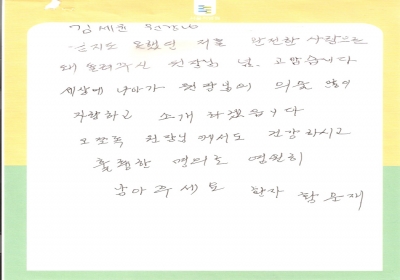 김세윤 원장님
못했던 저를 완전한 사람으로
돌려주신 원장님 고맙습니다
세상에 나아가 원장님의 의술 많이
자랑하고 소개 하겠습니다
모쪼록 원장님께서도 건강하시고
훌륭한 명의로 영원히
남아주세요 환자